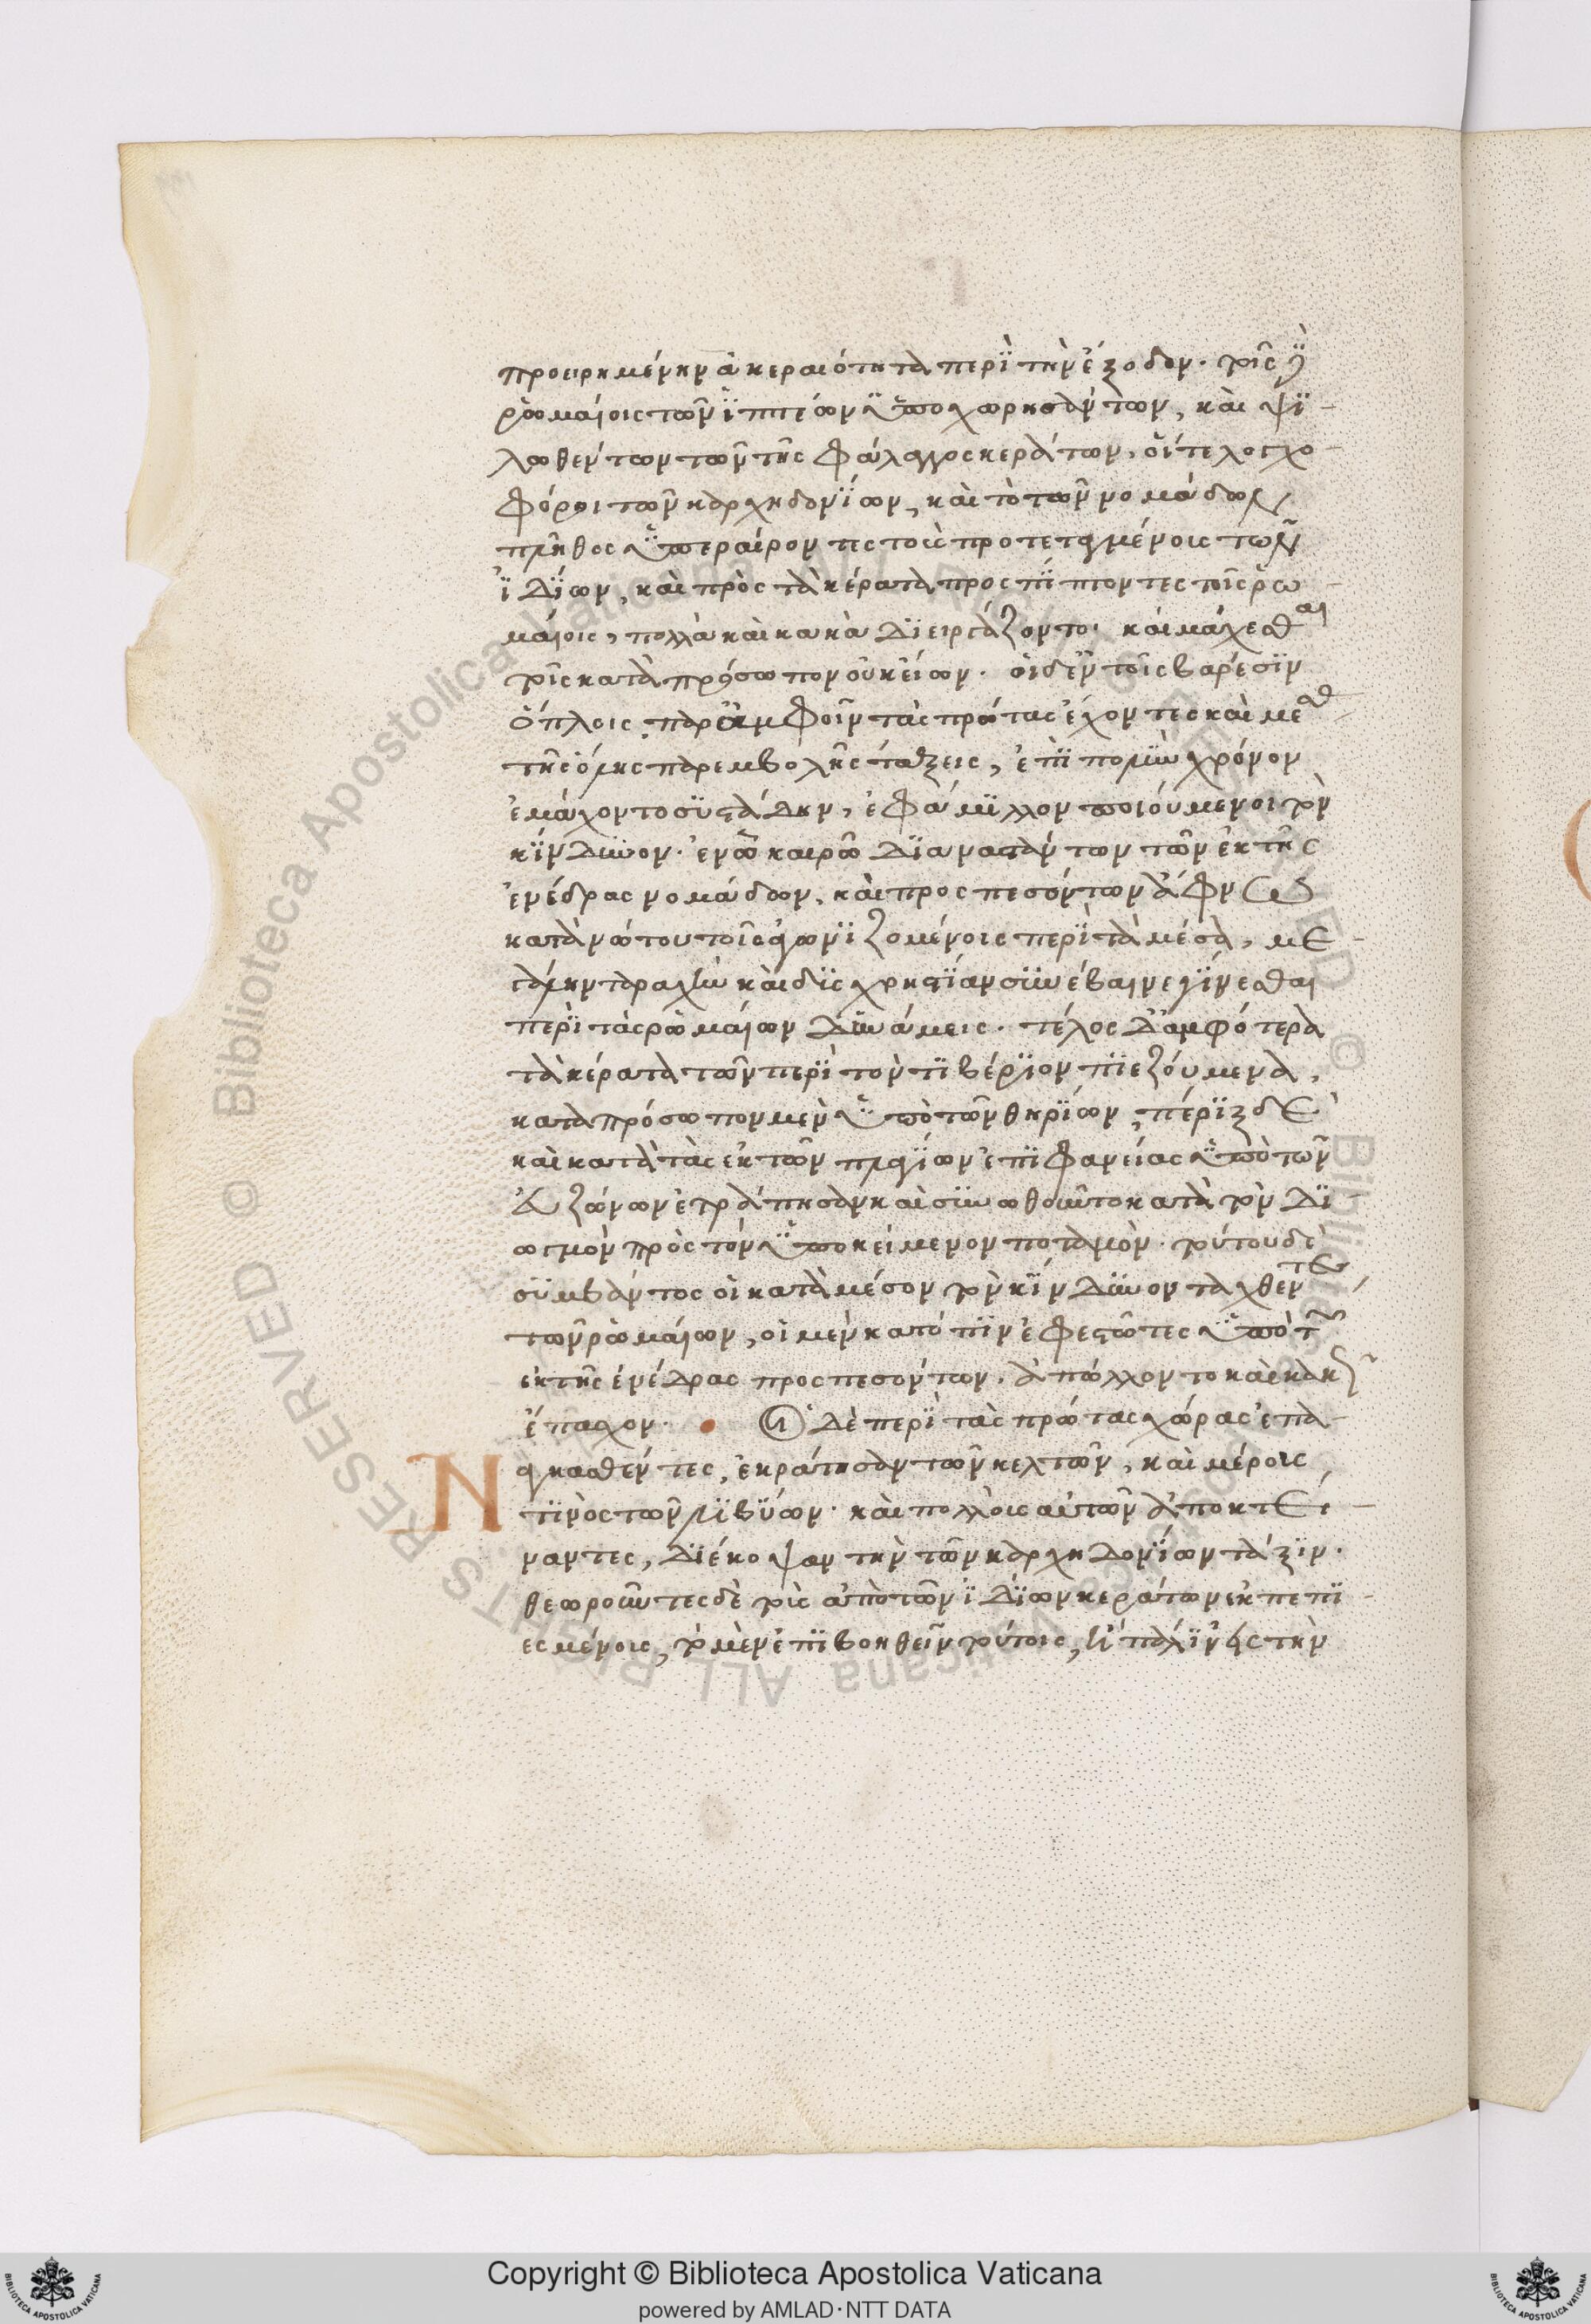 προειρημένην ἀκεραιότητα περὶ τὴν ἔξοδον. τοῖς δὲ
ῥωμαίοις τῶν ἱππέων ὑποχωρησάντων, καὶ ψι-
λωθέντων τῶν τῆς φάλαγγος κεράτων, οἵ τε λογχο-
φόροι τῶν καρχηδονίων, καὶ τὸ τῶν νομάδων
πλῆθος ὑπεραίροντες τοὺς προτεταγμένους τῶν
ἰδίων, καὶ πρὸς τὰ κέρατα προσπίπτοντες τοῖς ῥω-
μαίοις, πολλὰ καὶ κακὰ διειργάζοντο. καὶ μάχεσθαι
τοῖς κατὰ πρόσωπον οὐκ εἴων. οἱ δ' ἐν τοῖς βαρέσιν
ὅπλοις παρ' ἀμφοῖν τὰς πρώτας ἔχοντες καὶ μέσας
τῆς ὅλης παρεμβολῆς τάξεις, ἐπὶ πολὺν χρόνον
ἐμάχοντο συστάδην, ἐφάμιλλον ποιούμενοι τὸν
κίνδυνον. ἐν ᾧ καιρῷ διαναστάντων τῶν ἐκ τῆς
ἐνέδρας νομάδων, καὶ προσπεσόντων ἄφνω
κατὰ νώτου τοῖς ἀγωνιζομένοις περὶ τὰ μέσα, με-
γάλην ταραχὴν καὶ δυσχρηστίαν συνέβαινε γίνεσθαι
περὶ τὰς ῥωμαίων δυνάμεις. τέλος δ' ἀμφότερα
τὰ κέρατα τῶν περὶ τὸν τιβέριον πιεζούμενα,
κατὰ πρόσωπον μὲν ὑπὸ τῶν θηρίων, πέριξ δὲ
καὶ κατὰ τὰς ἐκ τῶν πλαγίων ἐπιφανείας ὑπὸ τῶν
εὐζώνων ἐτράπησαν καὶ συνωθοῦντο κατὰ τὸν δι-
ωγμὸν πρὸς τὸν ὑποκείμενον ποταμόν. τούτου δὲ
συμβάντος οἱ κατὰ μέσον τὸν κίνδυνον ταχθέντες
τῶν ῥωμαίων, οἱ μὲν κατόπιν ἐφεστῶτες ὑπὸ τῶν
ἐκ τῆς ἐνέδρας προσπεσόντων, ἀπώλλοντο καὶ κακῶς
ἔπασχον. Οἱ δὲ περὶ τὰς πρώτας χώρας ἐπα-
Ν αγκασθέντες, ἐκράτησαν τῶν κελτῶν, καὶ μέρους
τινὸς τῶν λιβύων. καὶ πολλοὺς αὐτῶν ἀποκτεί-
ναντες, διέκοψαν τὴν τῶν καρχηδονίων τάξιν.
θεωροῦντες δὲ τοὺς ἀπὸ τῶν ἰδίων κεράτων ἐκπεπι-
εσμένους, τὸ μὲν ἐπιβοηθεῖν τούτοις, ἢ πάλιν εἰς τὴν
Copyright © Biblioteca Apostolica Vaticana
powered by AMLAD·NTT DATA